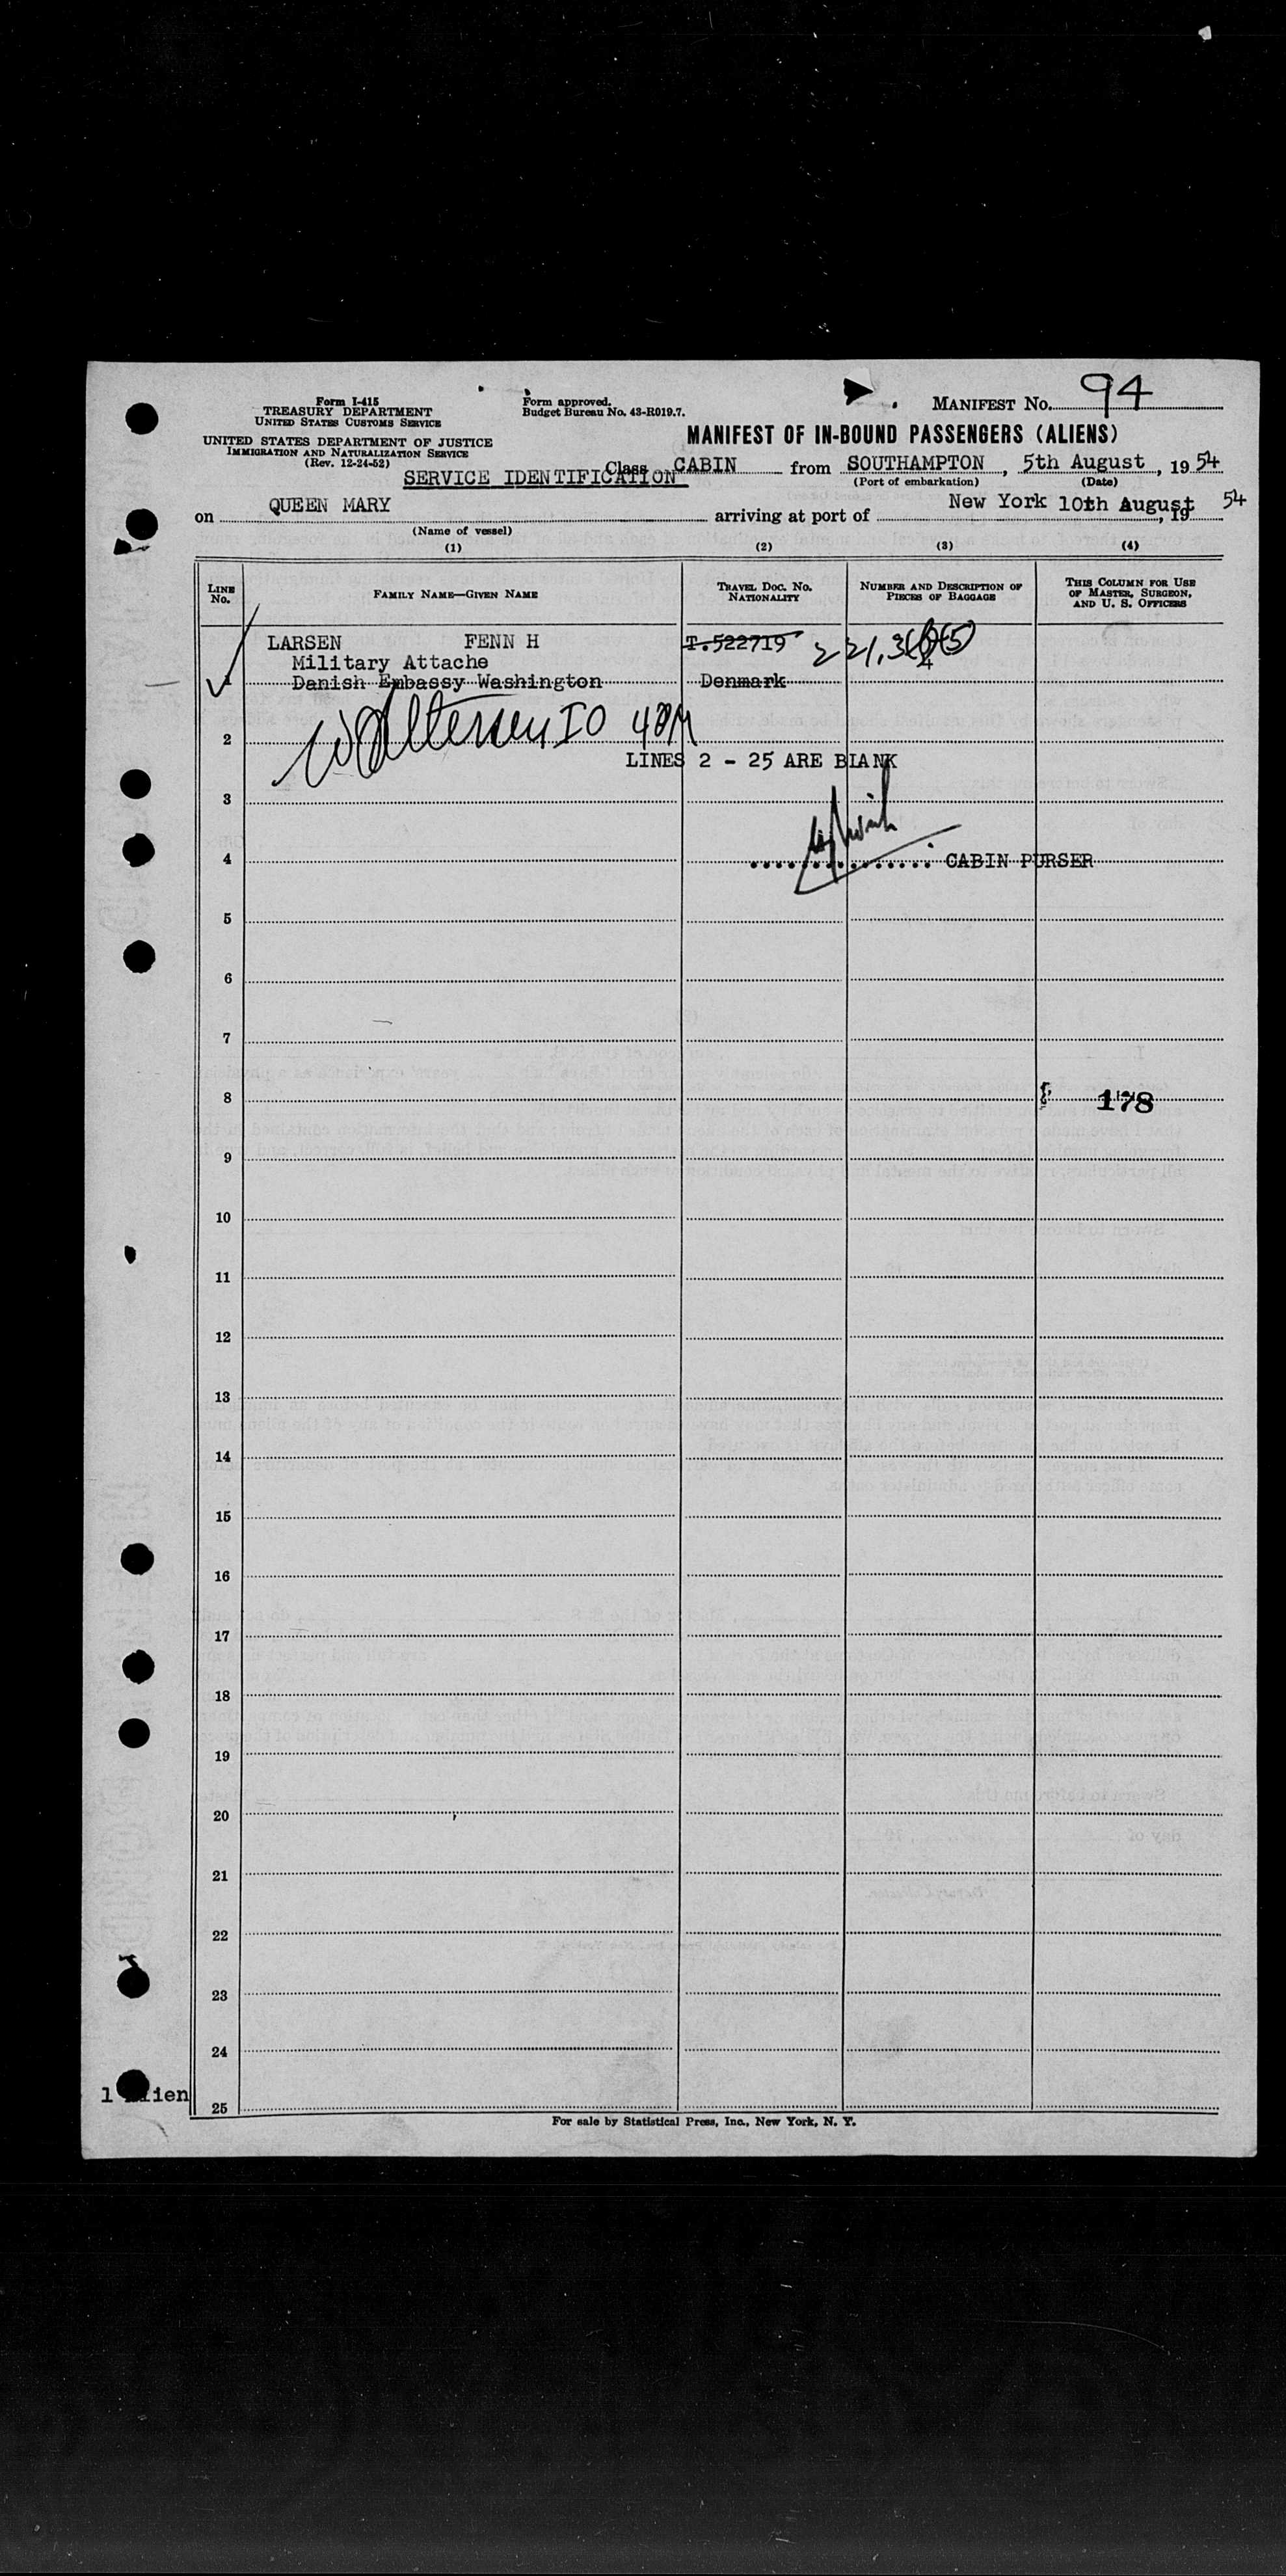 Form I-415
TREASURY DEPARTMENT
UNITED STATES CUSTOMS SERVICE
UNITED STATES DEPARTMENT OF JUSTICE
IMMIGRATION AND NATURALIZATION SERVICE
(Rev. 12-24-52)
Form approved.
Budget Bureau No. 43-R019.7.
MANIFEST No. 94
MANIFEST OF IN-BOUND PASSENGERS (ALIENS)
SERVICE IDENTIFICATION
Class CABIN from SOUTHAMPTON, 5th August, 1954
(Port of embarkation) (Date)
on QUEEN MARY arriving at port of New York 10th August, 19 54
(Name of vessel)
(1) (2) (3) (4)
LINE No. FAMILY NAME—GIVEN NAME TRAVEL DOC. NO. NATIONALITY NUMBER AND DESCRIPTION OF PIECES OF BAGGAGE THIS COLUMN FOR USE OF MASTER, SURGEON, AND U. S. OFFICERS
LARSEN FENN H T.522719
Military Attache
1 Danish Embassy Washington Denmark
2
LINES 2 - 25 ARE BLANK
3
4 CABIN PURSER
5
6
7
8 178
9
10
11
12
13
14
15
16
17
18
19
20
21
22
23
24
1 Alien
25
For sale by Statistical Press, Inc., New York, N. Y.